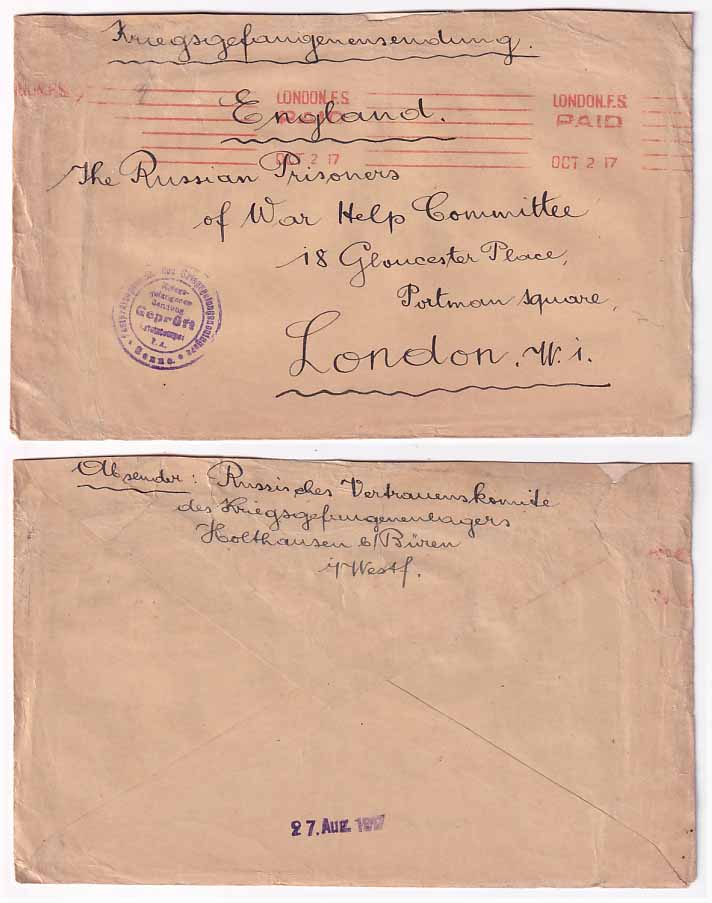 Kriegsgefangenensendung.
LONDON.F.S. LONDON.F.S.
PAID PAID
England.
OCT 2 17 OCT 2 17
The Russian Prisoners
of War Help Committee
18 Gloucester Place,
Portman square,
London. W. 1.
Kriegs-
gefangenen
Sendung
Geprüft
F. A.
Senne.
Absender: Russisches Vertrauenskomite
des Kriegsgefangenenlagers
Holthausen b/Büren
i/Westf.
27. Aug. 1917